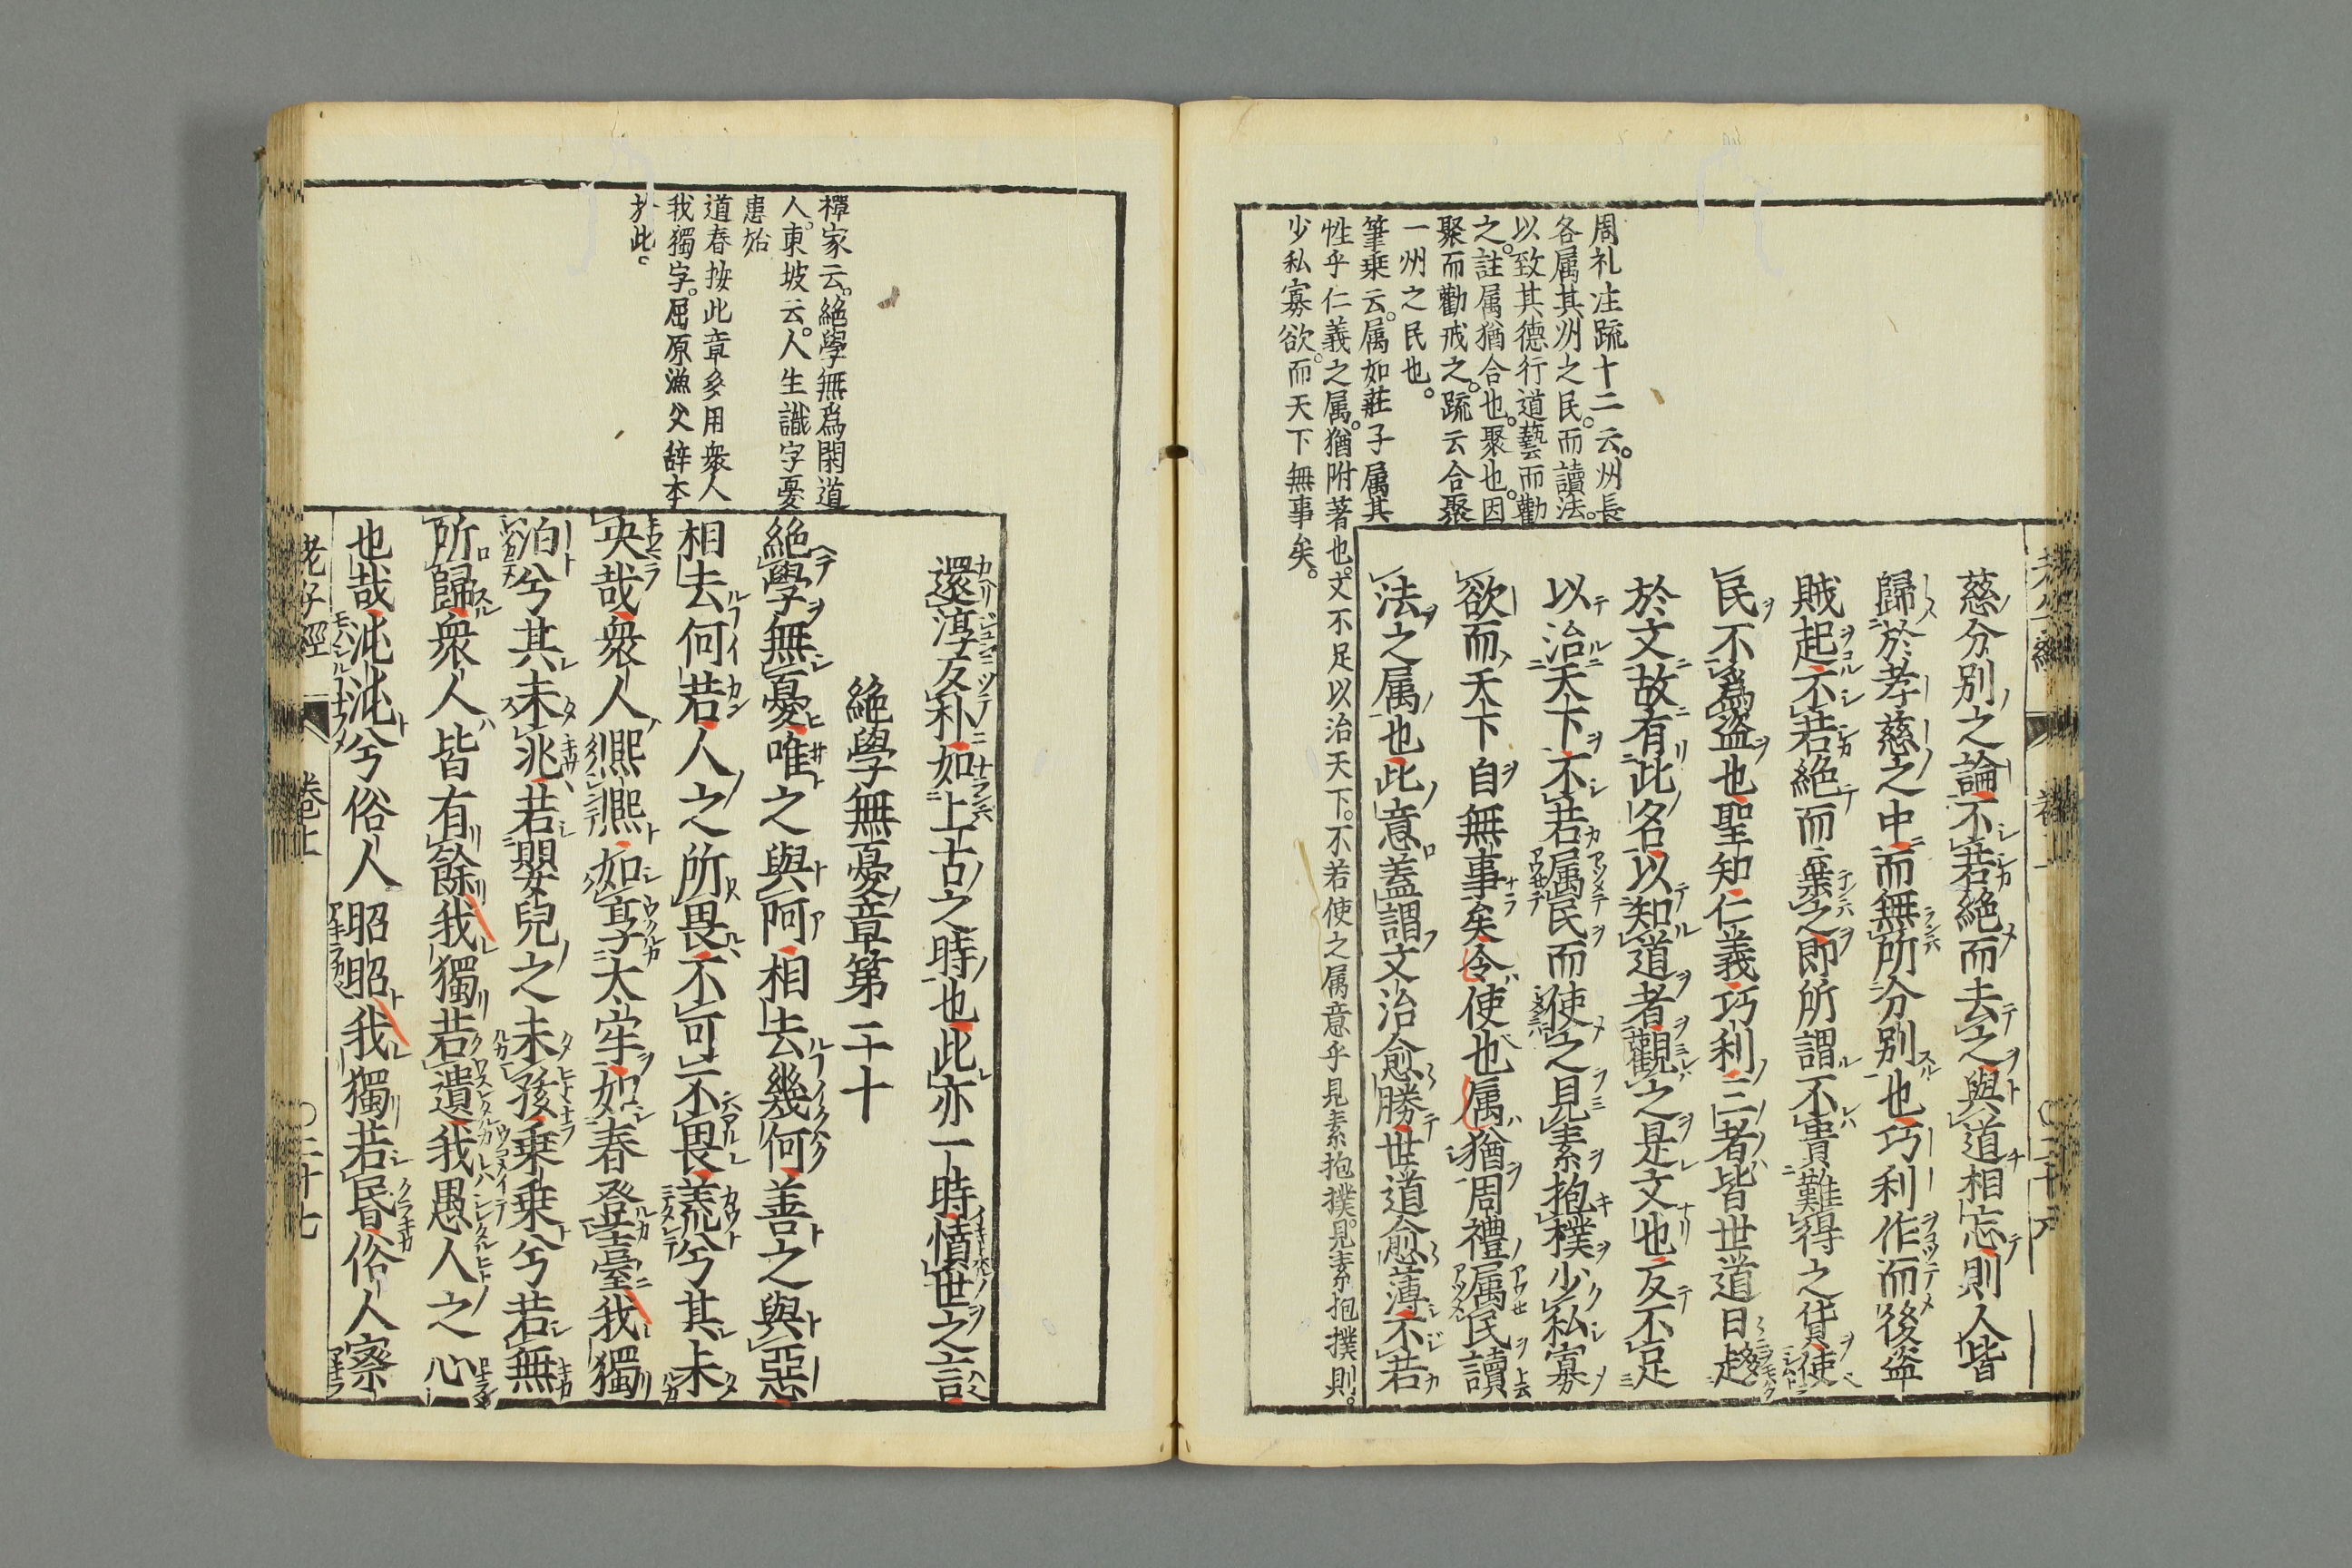 周礼注疏十二云。州長
各属其州之民。而讀法。
以致其德行道藝而勸
之。註属猶合也。聚也。因
聚而勸戒之。疏云合聚
一州之民也。
筆乗云。属如莊子属其
性乎仁義之属。猶附著也。文不足以治天下。不若使之属意乎見素抱樸。見素抱撲則。
少私寡欲。而天下無事矣。
慈分別之論不若絶而去之與道相忘則人皆
歸於孝慈之中而無所分別也巧利作而後盗
賊起不若絶而棄之即所謂不貴難得之貨使
民不為盗也聖知仁義巧利三者皆世道日趍
於文故有此名以知道者觀之是文也反不足
以治天下不若属民而使之見素抱樸少私寡
欲而天下自無事矣令使也属猶周禮属民讀
法之属也此意蓋謂文治愈勝世道愈薄不若
禪家云。絶學無爲閑道
人。東坡云。人生識字憂
患始
道春按此章多用衆人
我獨字。屈原漁父辞本
於此。
還淳反朴如上古之時也此亦一時憤世之言
絶學無憂章第二十
絶學無憂唯之與阿相去幾何善之與惡
相去何若人之所畏不可不畏荒兮其未
央哉衆人熈熈如享太牢如春登臺我獨
泊兮其未兆若嬰兒之未孩乗乗兮若無
所歸衆人皆有餘我獨若遺我愚人之心
也哉沌沌兮俗人昭昭我獨若昏俗人察
老子經 巻上 〇二十七